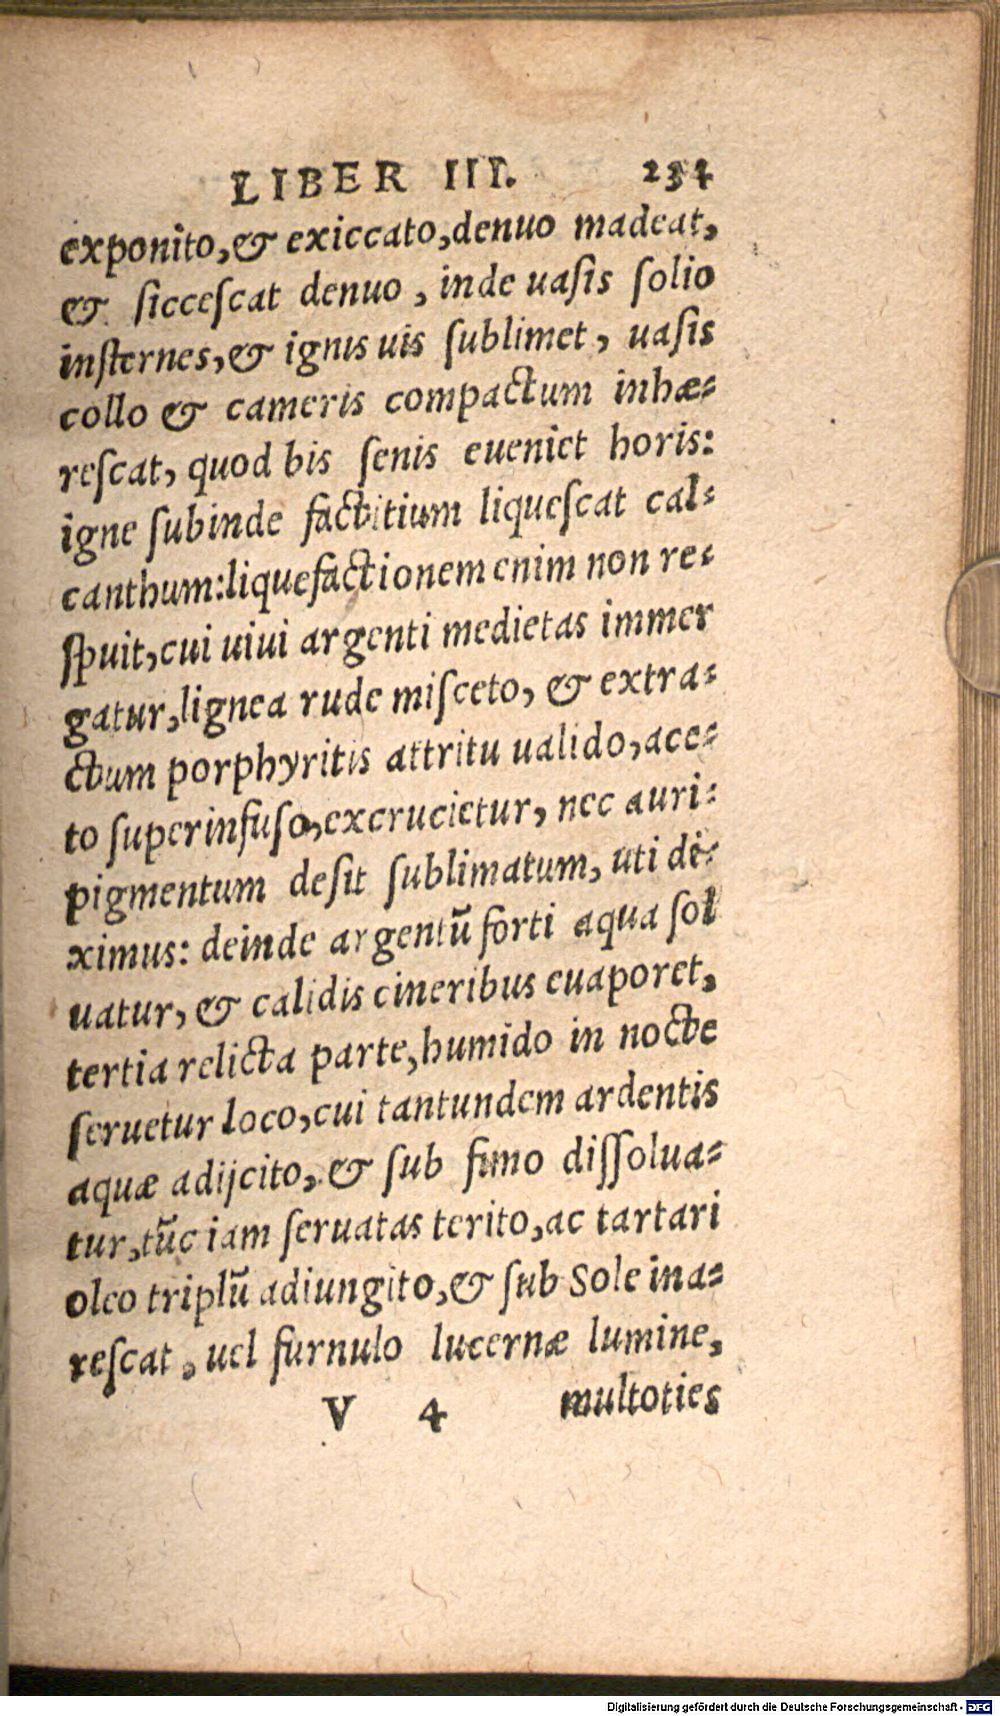 LIBER III. 234
exponito, & exiccato, denuo madeat,
& siccescat denuo, inde uasis solio
insternes, & ignis uis sublimet, uasis
collo & cameris compactum inhæ-
rescat, quod bis senis eueniet horis:
igne subinde factitium liquescat cal-
canthum: liquefactionem enim non re-
spuit, cui uiui argenti medietas immer
gatur, lignea rude misceto, & extra-
ctum porphyritis attritu ualido, ace-
to superinfuso, excrucietur, nec auri-
pigmentum desit sublimatum, uti di-
ximus: deinde argentũ forti aqua sol
uatur, & calidis cineribus euaporet,
tertia relicta parte, humido in nocte
seruetur loco, cui tantundem ardentis
aquæ adijcito, & sub fimo dissolua-
tur, tũc iam seruatas terito, ac tartari
oleo triplũ adiungito, & sub Sole ina-
rescat, uel furnulo lucernæ lumine,
V 4 multoties
Digitalisierung gefördert durch die Deutsche Forschungsgemeinschaft - DFG